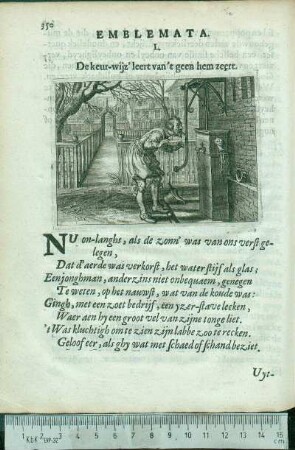 350
EMBLEMATA.
I.
De keur-wijz' leert van 't geen hem zeert.
NU on-langhs, als de zonn' was van ons verst ge-
legen,
Dat d'aerde was verkorst, het water stijf als glas;
Een jonghman, anderzins niet onbequaem, genegen
Te weten, op het nauwst, wat van de koude was:
Gingh, met een zoet bedrijf, een yzer-stave leeken,
Waer aen hy een groot vel van zijne tonge liet.
't Was kluchtigh om te zien zijn labbe zoo te recken.
Geloof eer, als ghy wat met schaed of schand beziet.
Uyt-
1 2 3 4 5 6 7 8 9 10 11 12 13 14 15
cm